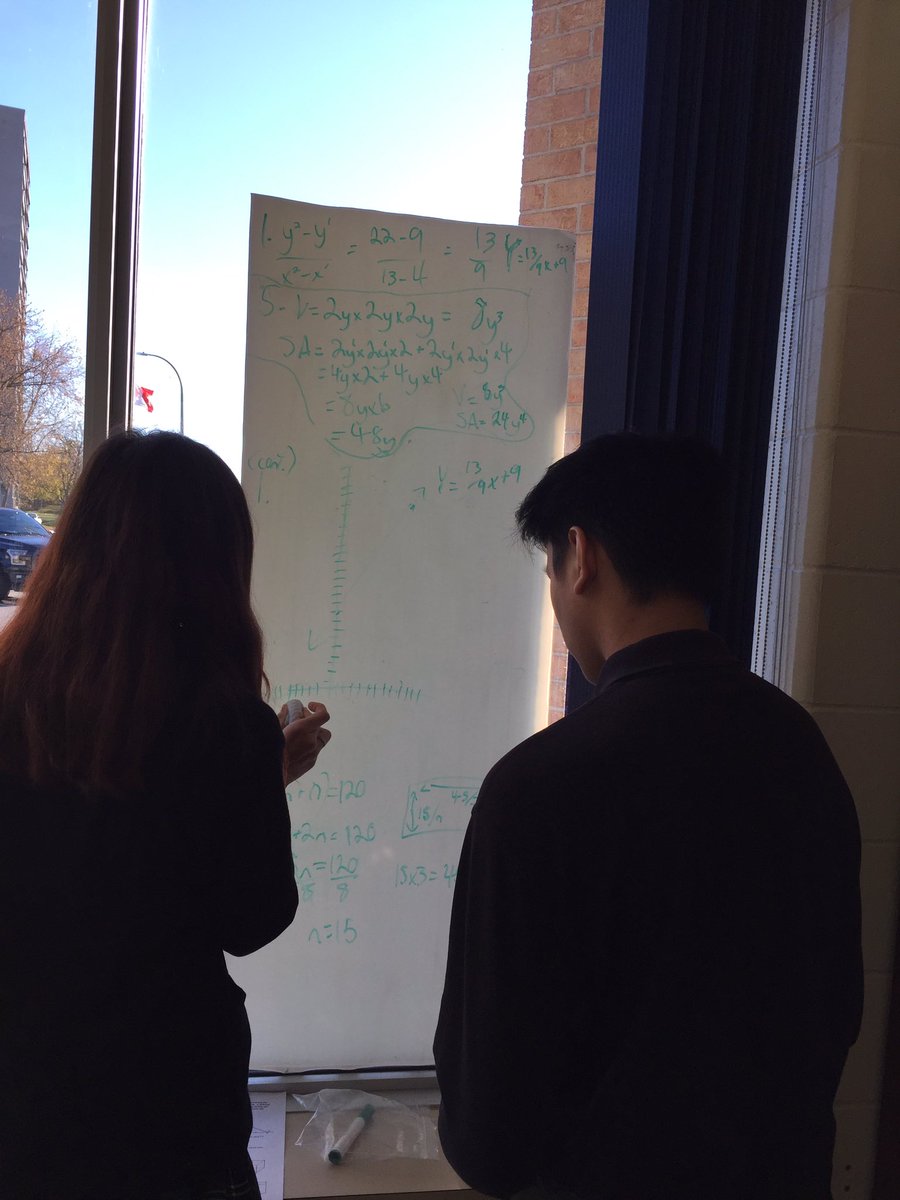 1. y²-y¹ / x²-x¹ = 22-9 / 13-4 = 13 / 9 Y=13/9x+9
5 - V=2yx2yx2y = 8y³
SA= 2yx2yx2 + 2yx2yx4
=4yx2+4yx4
=8yx6
=48y
V=8y³
SA=24y⁴
(con.)
1.
? Y= 13/9x+9
=120
+2n=120
n=120
8 8
n=15
15/n
15x3=